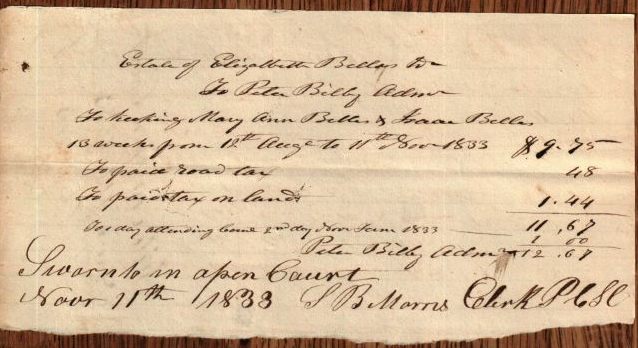 Estate of Elizabeth Bellas Dr
To Peter Bilby Admr
To keeping Mary Ann Bellas & Isaac Bellas
13 weeks from 12th Augt to 11th Nov 1833 $9.75
To paid road tax 48
To paid tax on lands 1.44
11.67
To 2 day attending Court 2nd day Novr Term 1833 1 00
Peter Bilby Admr 12.67
Sworn to in open Court
Novr 11th 1833 S B Morris Clerk P C